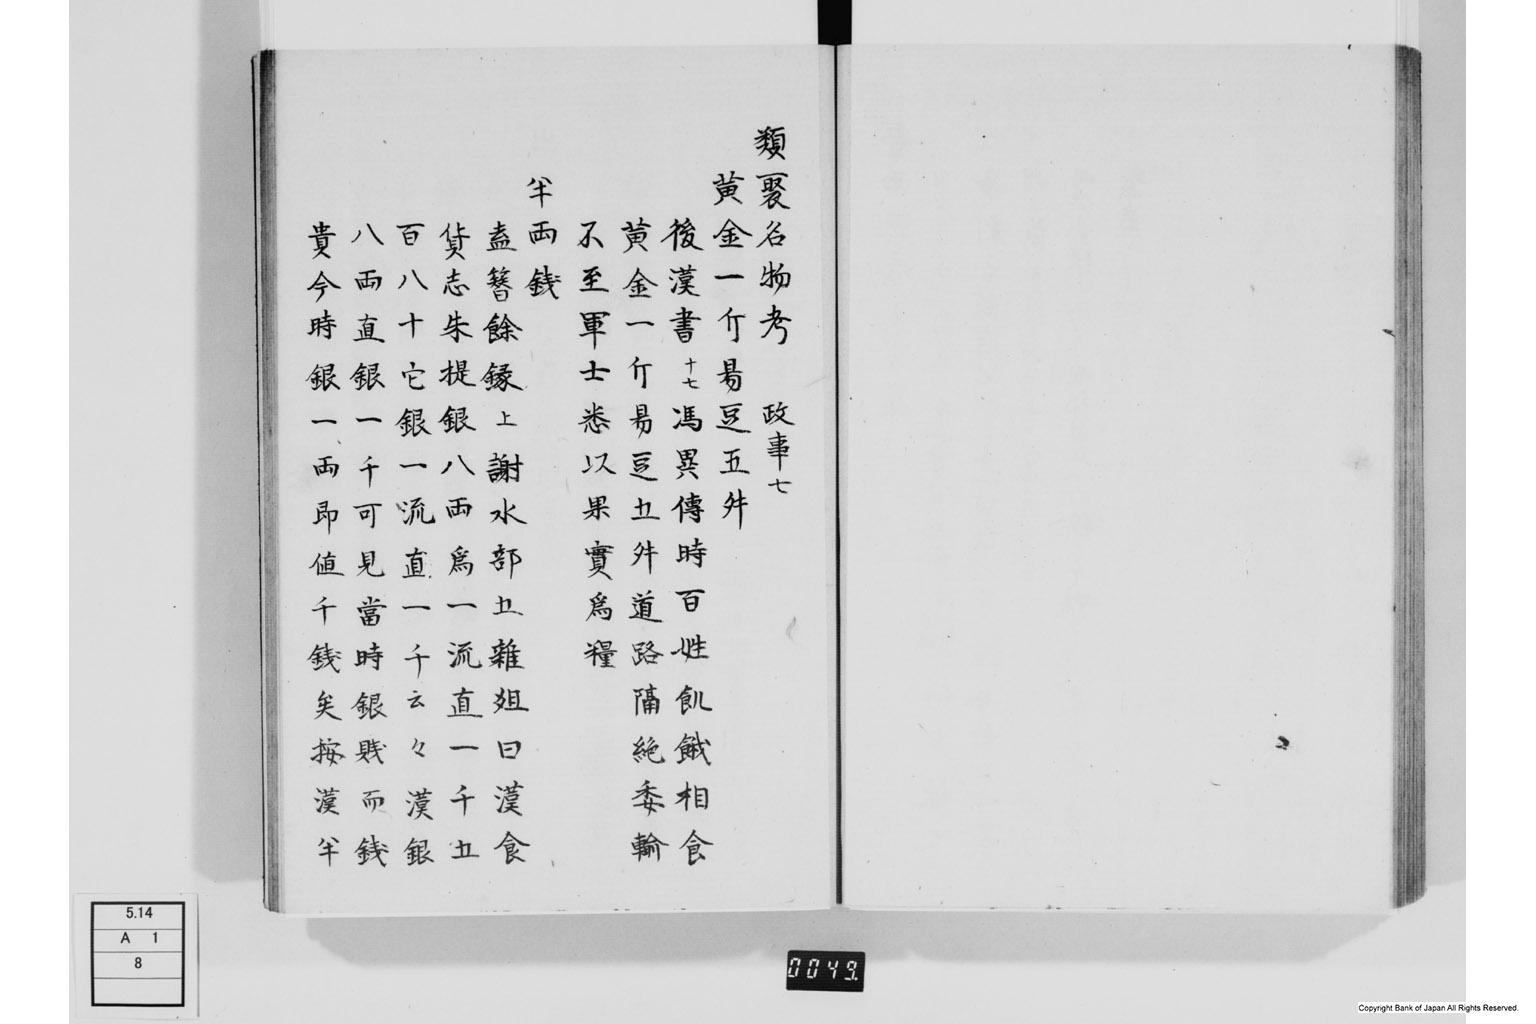 類聚名物考　政事七
黄金一斤易豆五舛
後漢書十七馮異傳時百姓飢餓相食
黄金一斤易豆五舛道路隔絶委輸
不至軍士悉以果實為糧
半両銭
盍簪餘録上謝水部五雜爼曰漢食
貨志朱提銀八両為一流直一千五
百八十它銀一流直一千云々漢銀
八両直銀一千可見當時銀賎而銭
貴今時銀一両即値千銭矣按漢半
5.14
A 1
8
0049
Copyright Bank of Japan All Rights Reserved.